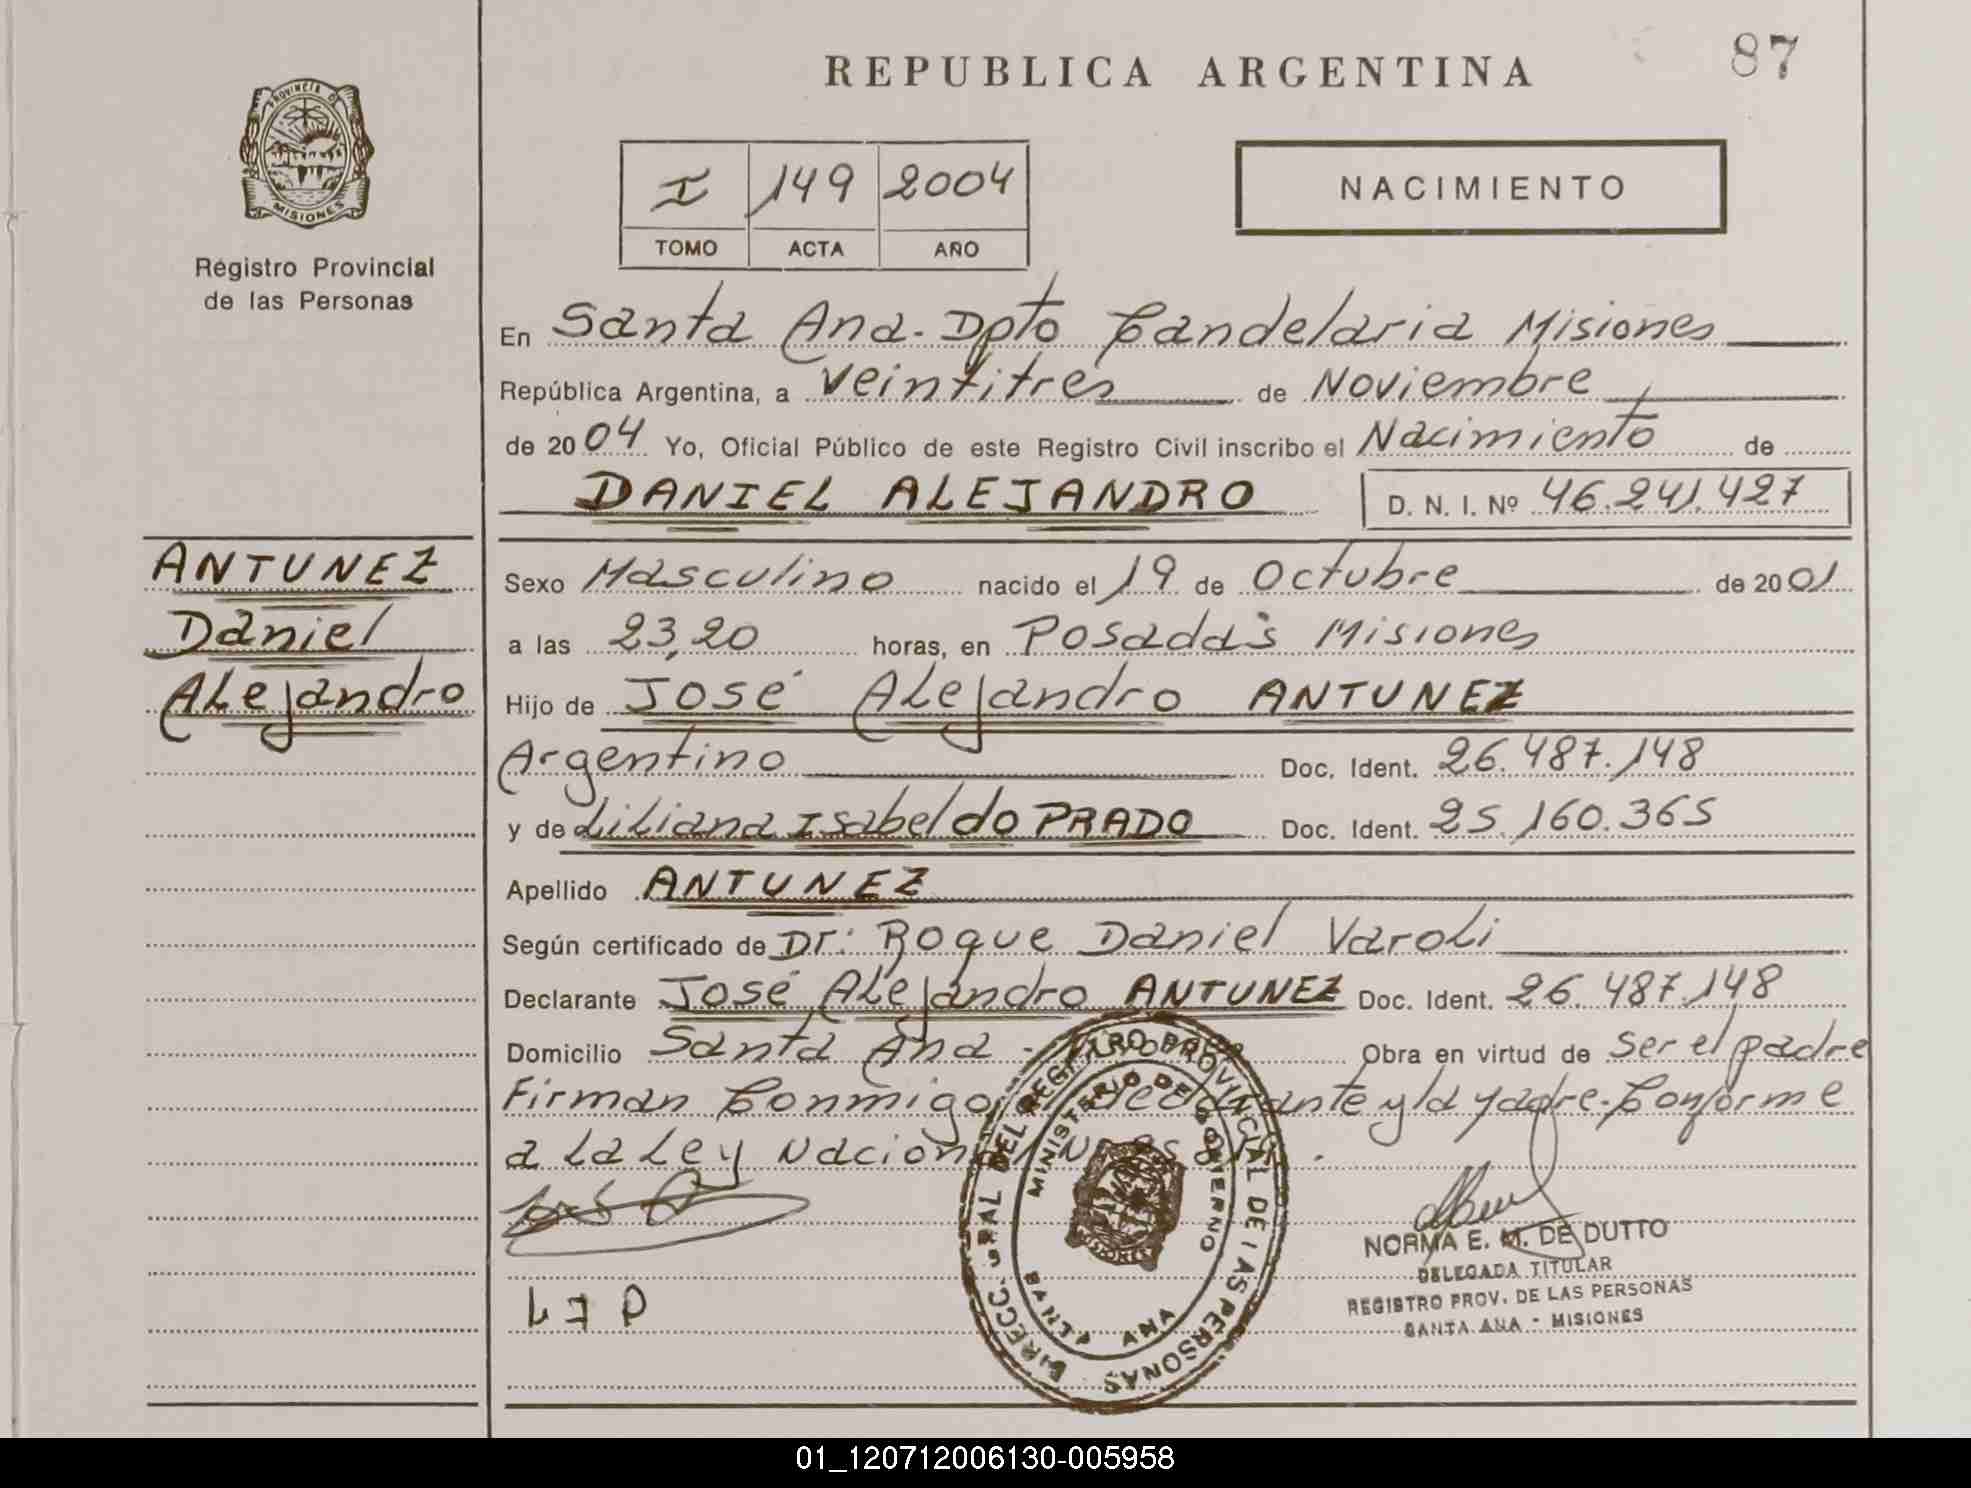 87
REPUBLICA ARGENTINA
PROVINCIA DE
MISIONES
Registro Provincial
de las Personas
I 149 2004
TOMO ACTA AÑO
NACIMIENTO
En Santa Ana - Dpto Candelaria Misiones
República Argentina, a Veintitres de Noviembre
de 2004 Yo, Oficial Público de este Registro Civil inscribo el Nacimiento de
DANIEL ALEJANDRO D. N. I. Nº 46.241.427
ANTUNEZ
Daniel
Alejandro
Sexo Masculino nacido el 19 de Octubre de 2001
a las 23,20 horas, en Posadas Misiones
Hijo de José Alejandro ANTUNEZ
Argentino Doc. Ident. 26.487.148
y de Liliana Isabel do PRADO Doc. Ident. 25.160.365
Apellido ANTUNEZ
Según certificado de Dr: Roque Daniel Varoli
Declarante José Alejandro ANTUNEZ Doc. Ident. 26.487.148
Domicilio Santa Ana - Obra en virtud de ser el padre
Firman Conmigo y la Conforme
a la Ley Nacional
DIRECC. GRAL DEL REGISTRO PROVINCIAL DE LAS PERSONAS
MINISTERIO DE GOBIERNO
SANTA ANA
MISIONES
NORMA E. M. DE DUTTO
DELEGADA TITULAR
REGISTRO PROV. DE LAS PERSONAS
SANTA ANA - MISIONES
01_120712006130-005958